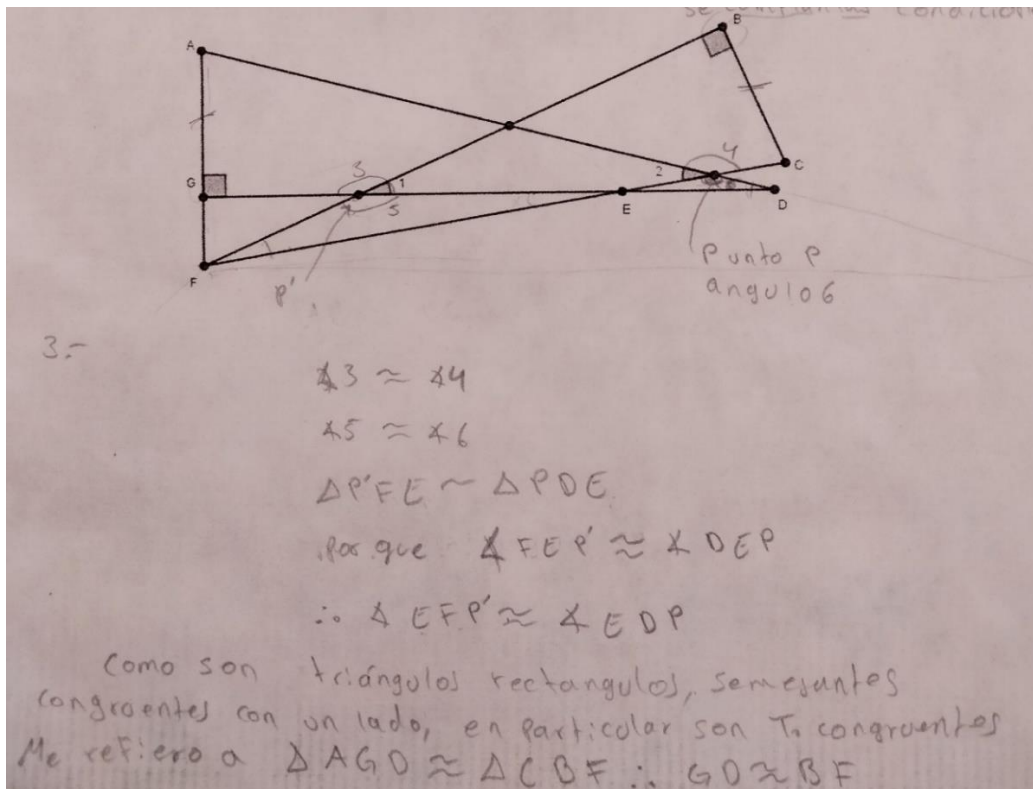 se cumplan las condicion
A
B
G
3
1
5
2
4
C
E
D
F
P'
Punto P
angulo 6
3.-
∡3 ≈ ∡4
∡5 ≈ ∡6
△P'FE ~ △PDE
por que ∡FEP' ≈ ∡DEP
∴ ∡EFP' ≈ ∡EDP
Como son triángulos rectangulos, semejantes
congruentes con un lado, en particular son T. congruentes
Me refiero a △AGD ≈ △CBF ∴ GD ≈ BF